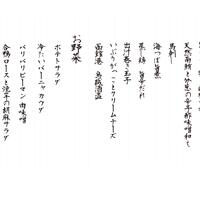 天然南鮪と分葱の辛子酢味噌和え
馬刺し
海つぼ旨煮
蒸し鶏 旨辛だれ
出汁巻き玉子
いぶりがっことクリームチーズ
函館港 烏賊酒盗
お野菜
ポテトサラダ
冷たいバーニャカウダ
バリバリピーマン 肉味噌
合鴨ロースと洗子の胡麻サラダ